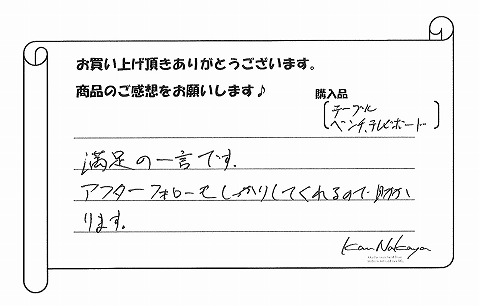 お買い上げ頂きありがとうございます。
商品のご感想をお願いします♪
購入品
テーブル
ベンチ、テレビボード
満足の一言です。
アフターフォローもしっかりしてくれるので助か
ります。
Kan Nakaya